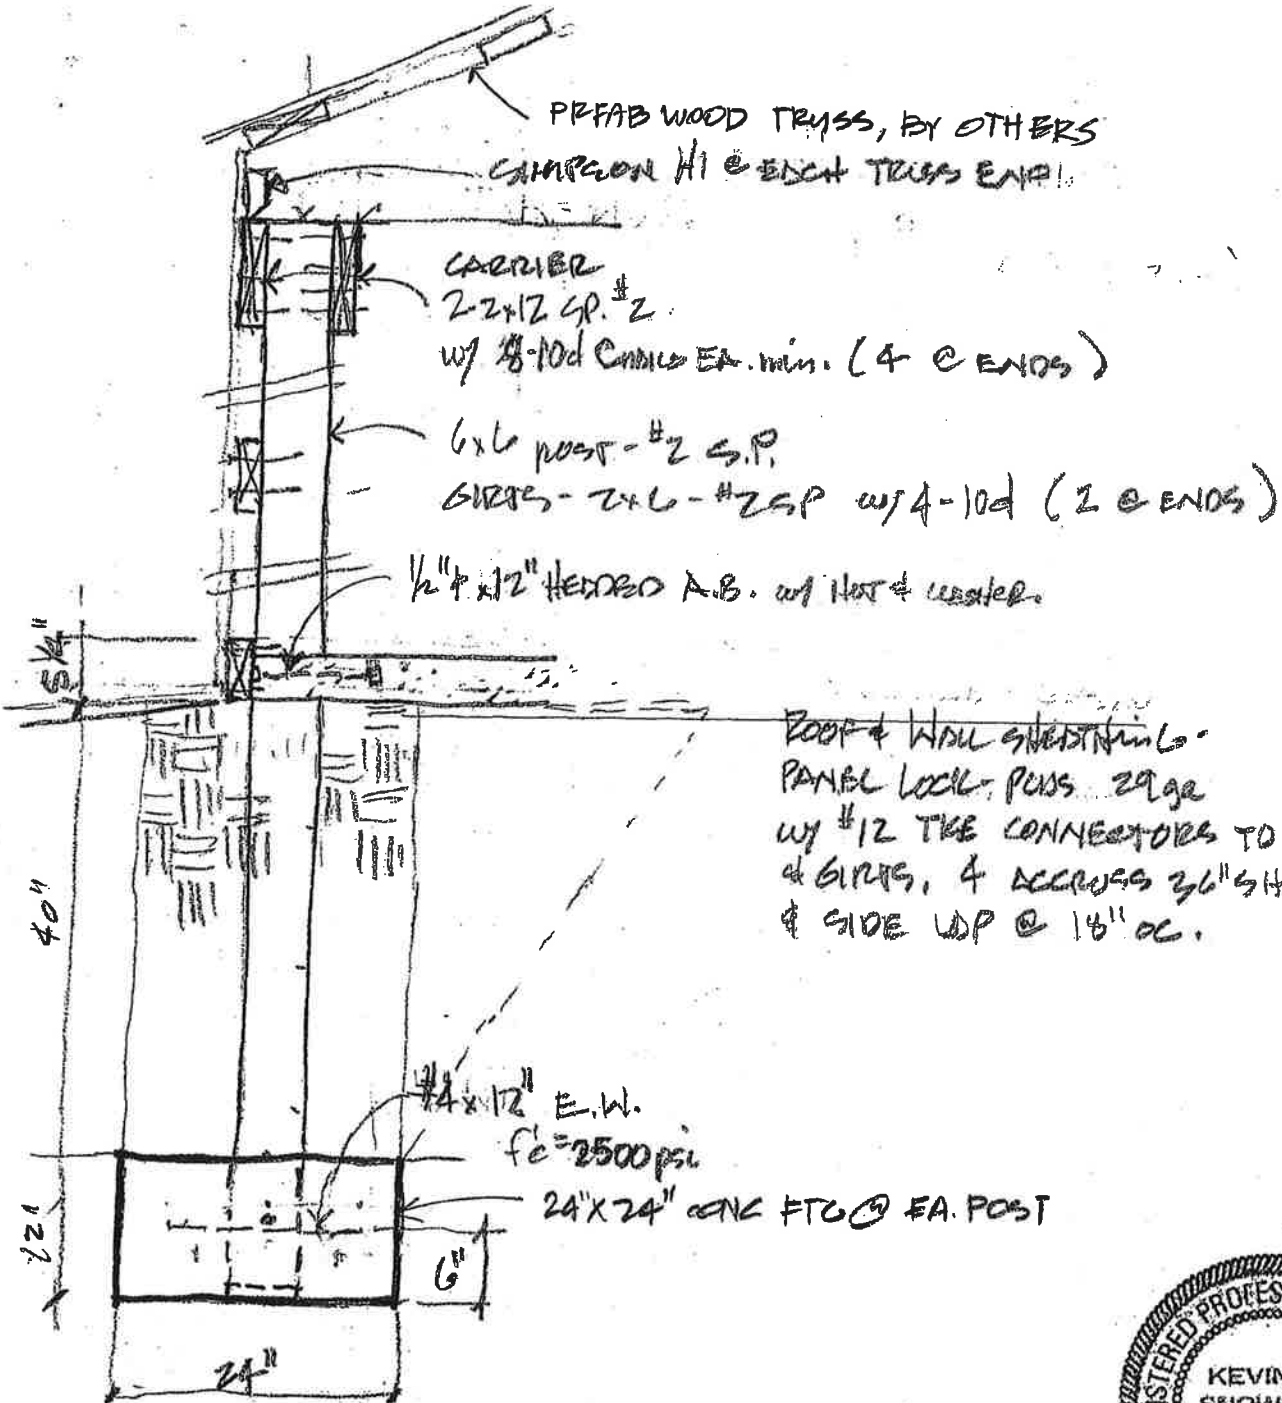 PREFAB WOOD TRUSS, BY OTHERS
SIMPSON H1 @ EACH TRUSS END
CARRIER
2-2x12 SP. #2
w/ 8-10d EA. min. (4 @ ENDS)
6x6 post - #2 S.P.
GIRTS - 2x6 - #2 SP w/ 4-10d (2 @ ENDS)
1/2"φ x12" HEADED A.B. w/ NUT & WASHER.
5 1/4"
ROOF & WALL SHEATHING -
PANEL LOCK- PLUS 29ga
w/ #12 CONNECTORS TO
& GIRTS, 4 ACCROSS 36" SH
& SIDE LAP @ 18" oc.
40"
#4 x 12" E.W.
f'c = 2500 psi
24" X 24" CONC FTG @ EA. POST
12"
6"
24"
STERED PROFES
KEVIN